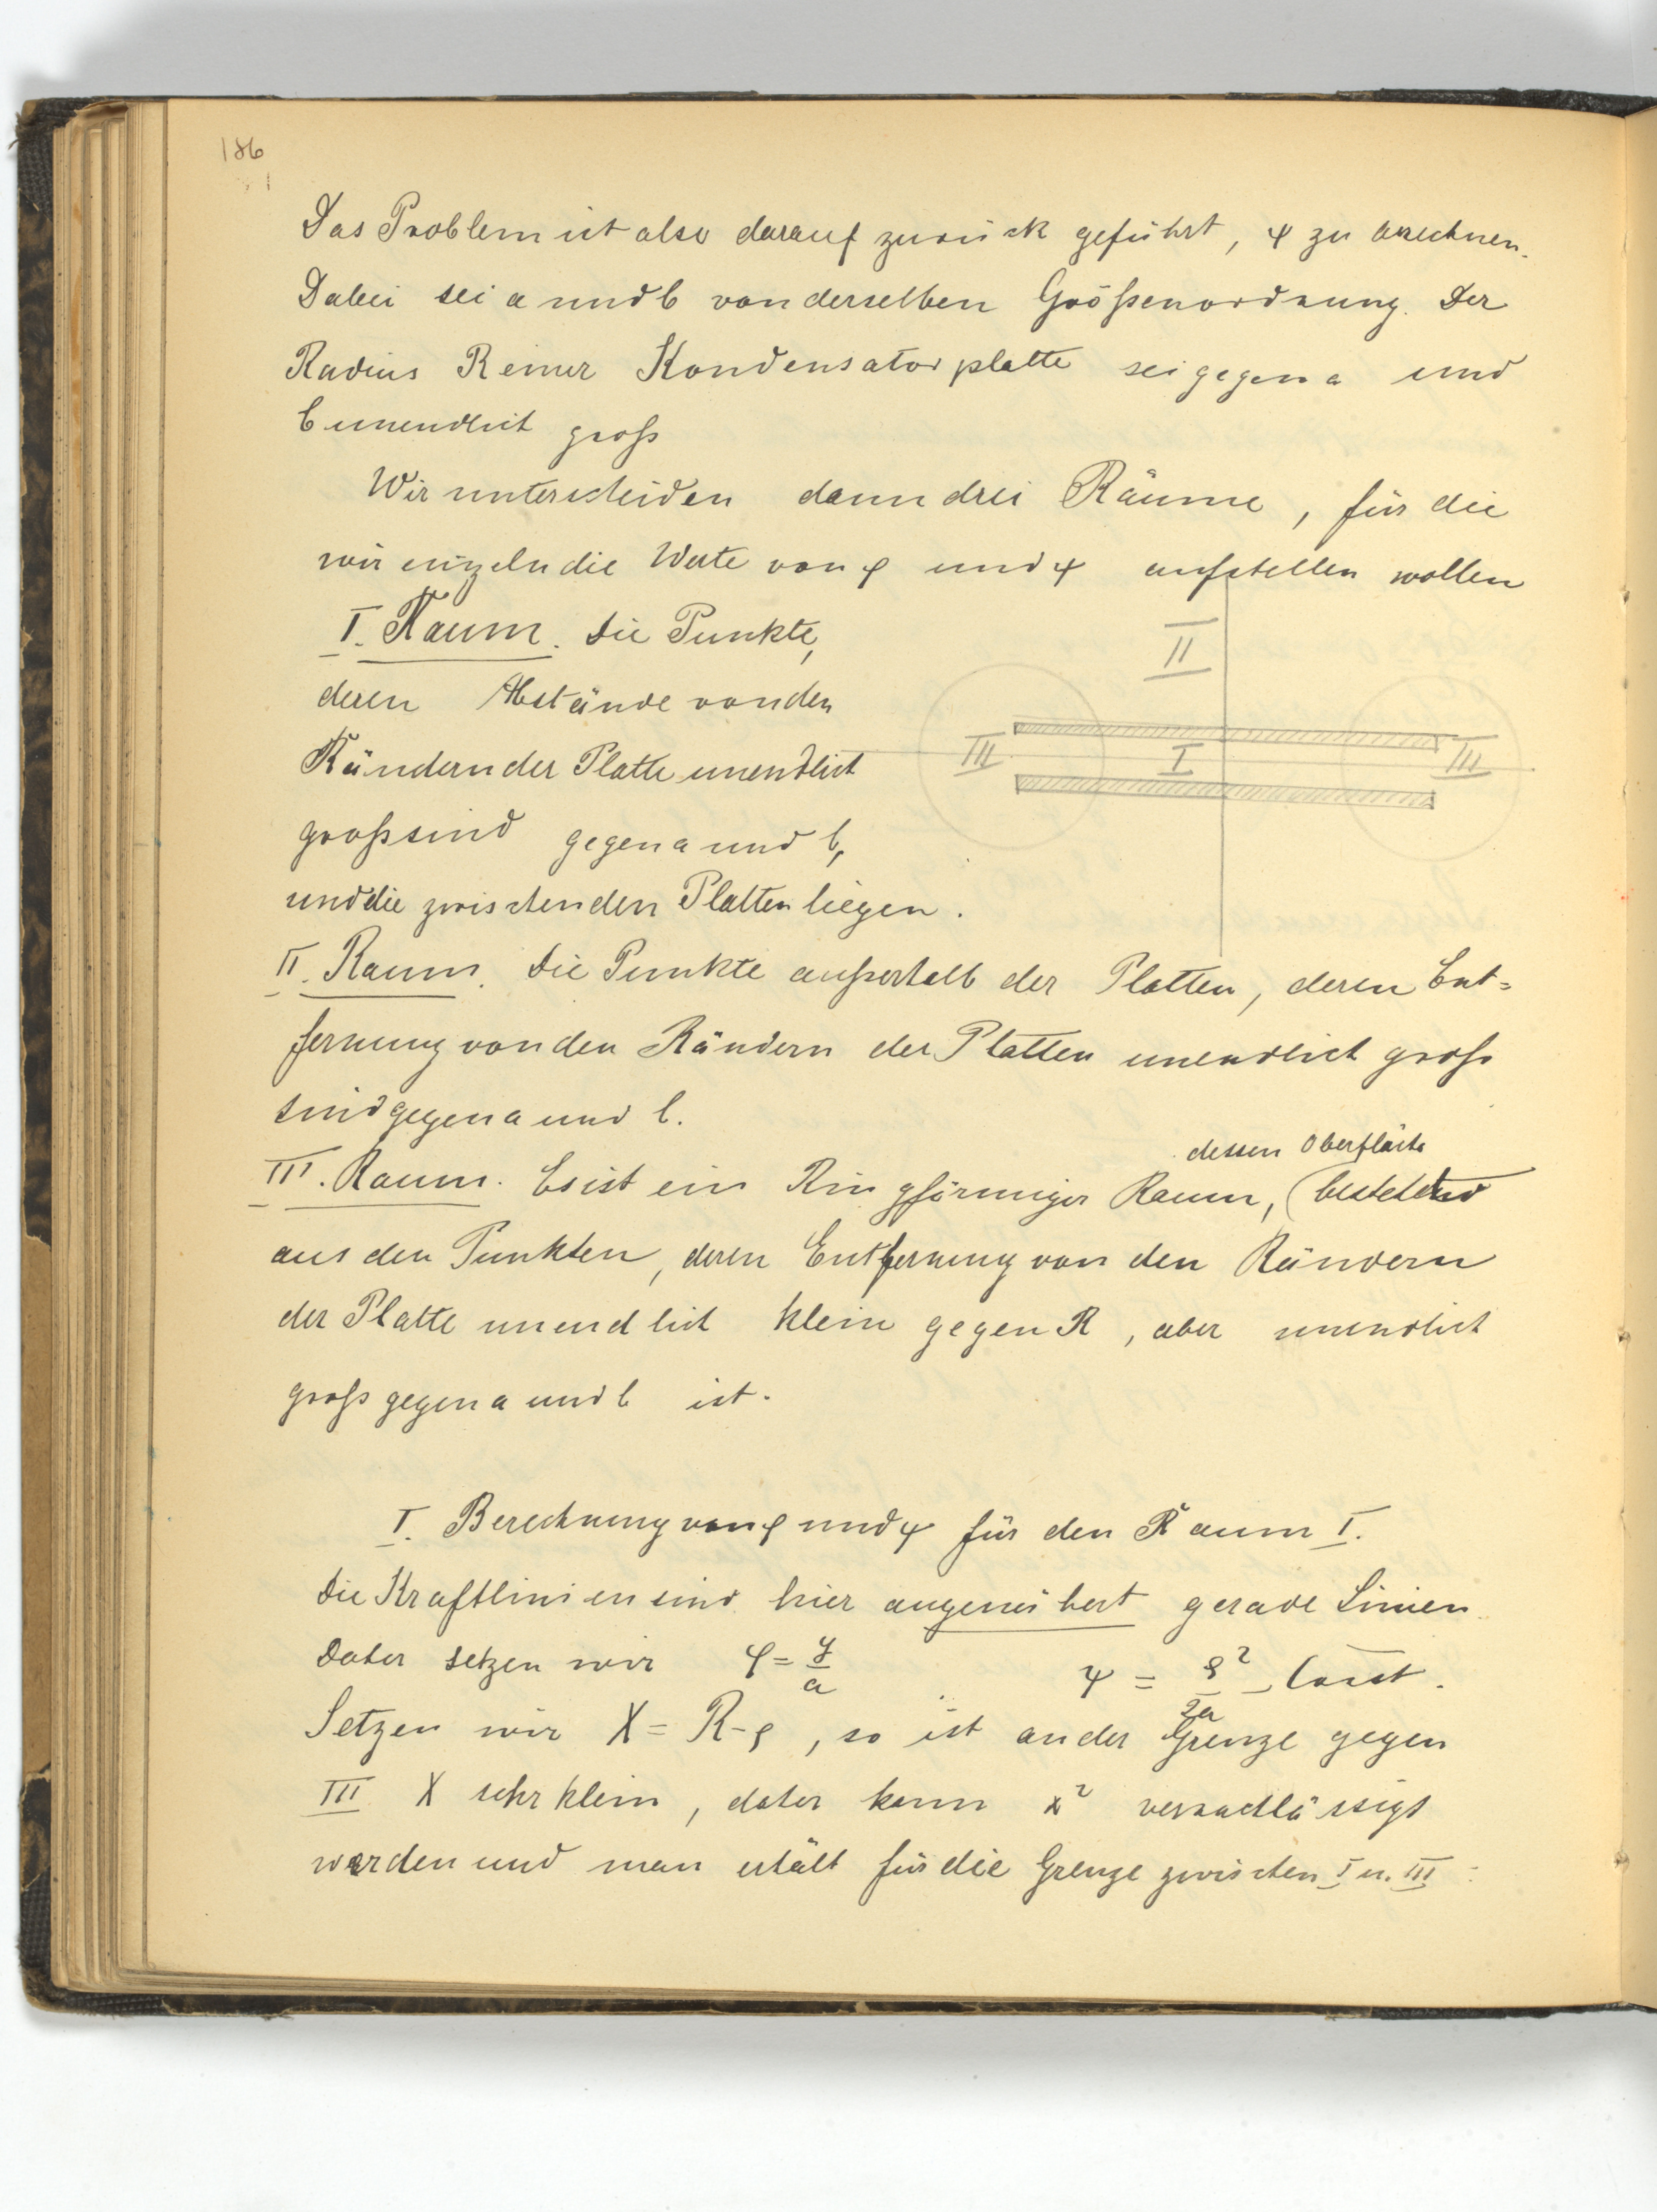 186
Das Problem ist also darauf zurück geführt, ψ zu berechnen.
Dabei sei a und b von derselben Größenordnung. Der
Radius R einer Kondensatorplatte sei gegen a und
b unendlich groß
Wir unterscheiden dann drei Räume, für die
wir einzeln die Werte von φ und ψ aufstellen wollen
I. Raum. Die Punkte,
deren Abstände von den
Rändern der Platte unendlich
groß sind gegen a und b,
und die zwischen den Platten liegen.
II
III I III
II. Raum. Die Punkte außerhalb der Platten, deren Ent=
fernung von den Rändern der Platten unendlich groß
sind gegen a und b.
dessen Oberfläche
III. Raum. Es ist ein Ringförmiger Raum, (bestehend
aus den Punkten, deren Entfernung von den Rändern
der Platte unendlich klein gegen R, aber unendlich
groß gegen a und b ist.
I. Berechnung von φ und ψ für den Raum I.
Die Kraftlinien sind hier angenähert gerade Linien.
Daher setzen wir φ = y/a ψ = ρ²/2a - Const.
Setzen wir X = R-ρ, so ist an der Grenze gegen
III X sehr klein, daher kann x² vernachlässigt
werden und man erhält für die Grenze zwischen I u. III :